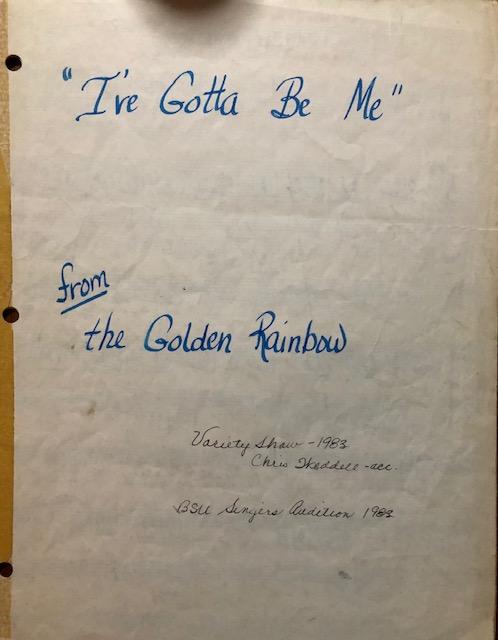 "I've Gotta Be Me"
from
the Golden Rainbow
Variety Show - 1983
Chris - acc.
BSU Singers Audition 1983